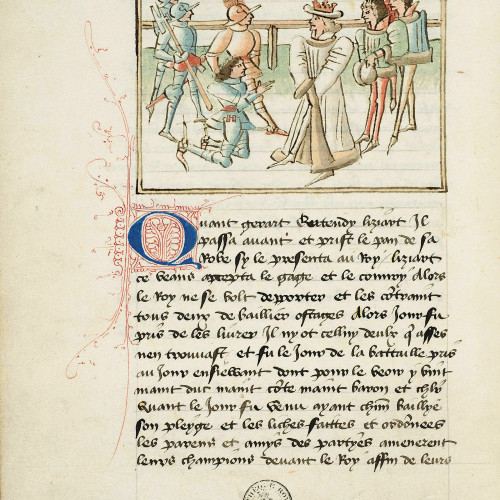 Quant gerart Entendy liziart Il
passa auant et prist le pan de sa
Robe sy le presenta au Roy liziart
ce veans accepta le gage et le conuoy Alors
le Roy ne se volt depporter et les cõtraint
tous deux de baillier ostages Alors Jour fu
pris de les liurer Il ny ot celluy deulx q̃ asses
nen trouuast et fu le Jour de la battaille pris
au Jour ensieuvant dont pour le veoir y vint
maint duc maint cõte maint baron et chl̃r
Quant le Jour fu venu ayant chũn baillye
son pleyge et les liches faittes et ordõnees
les parens et amys des partyes amenerent
leurs champions deuant le Roy affin de leurs